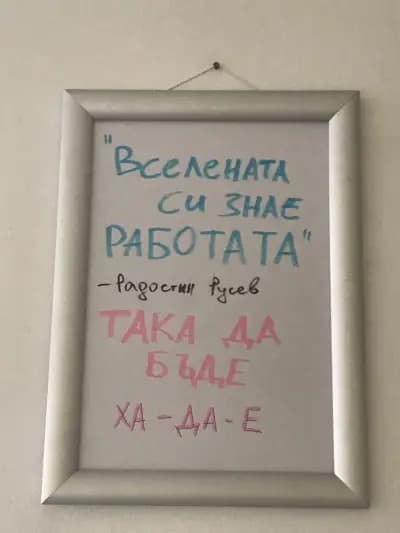 "Вселената
си знае
работата"
- Радостин Русев
ТАКА ДА
БЪДЕ
ХА - ДА - Е